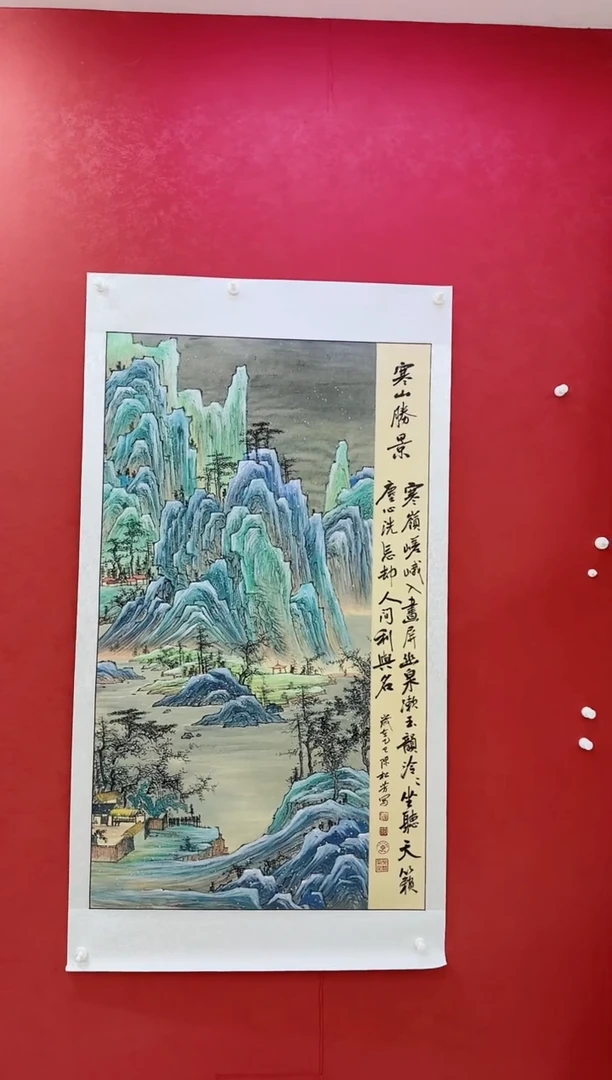 寒山勝景
寒嶺嵯峨入畫屏幽泉漱玉韻泠泠坐聽天籟
塵心洗忘却人间利與名
陳松芳写